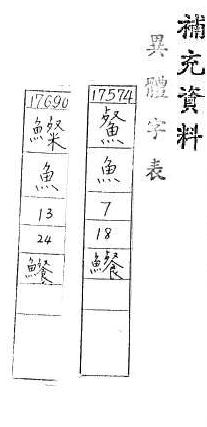 補充資料
異體字表
17574
䱗
魚
7
18
17690
魚
13
24